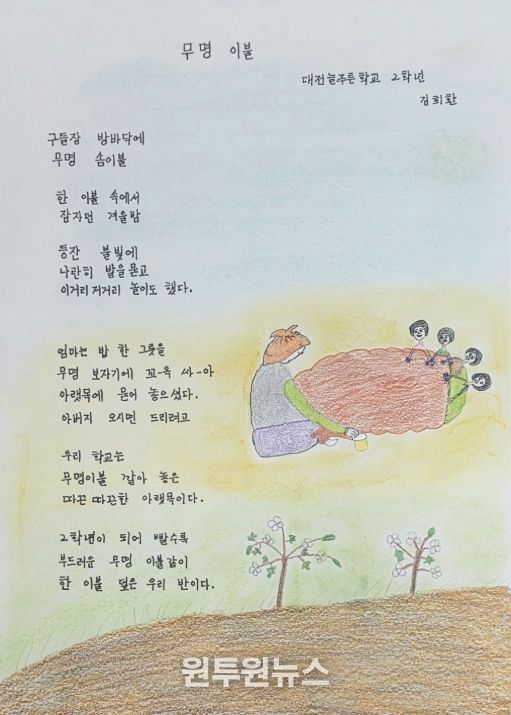 무명 이불
대전늘푸른학교 2학년
김희환
구들장 방바닥에
무명 솜이불
한 이불 속에서
잠자던 겨울밤
등잔 불빛에
나란히 발을묻고
이거리저거리 놀이도 했다.
엄마는 밥 한 그릇을
무명 보자기에 꼬-옥 싸-아
아랫목에 묻어 놓으셨다.
아버지 오시면 드리려고
우리 학교는
무명이불 깔아 놓은
따끈 따끈한 아랫목이다.
2학년이 되어 빨수록
부드러운 무명 이불같이
한 이불 덮은 우리 반이다.
원투원뉴스